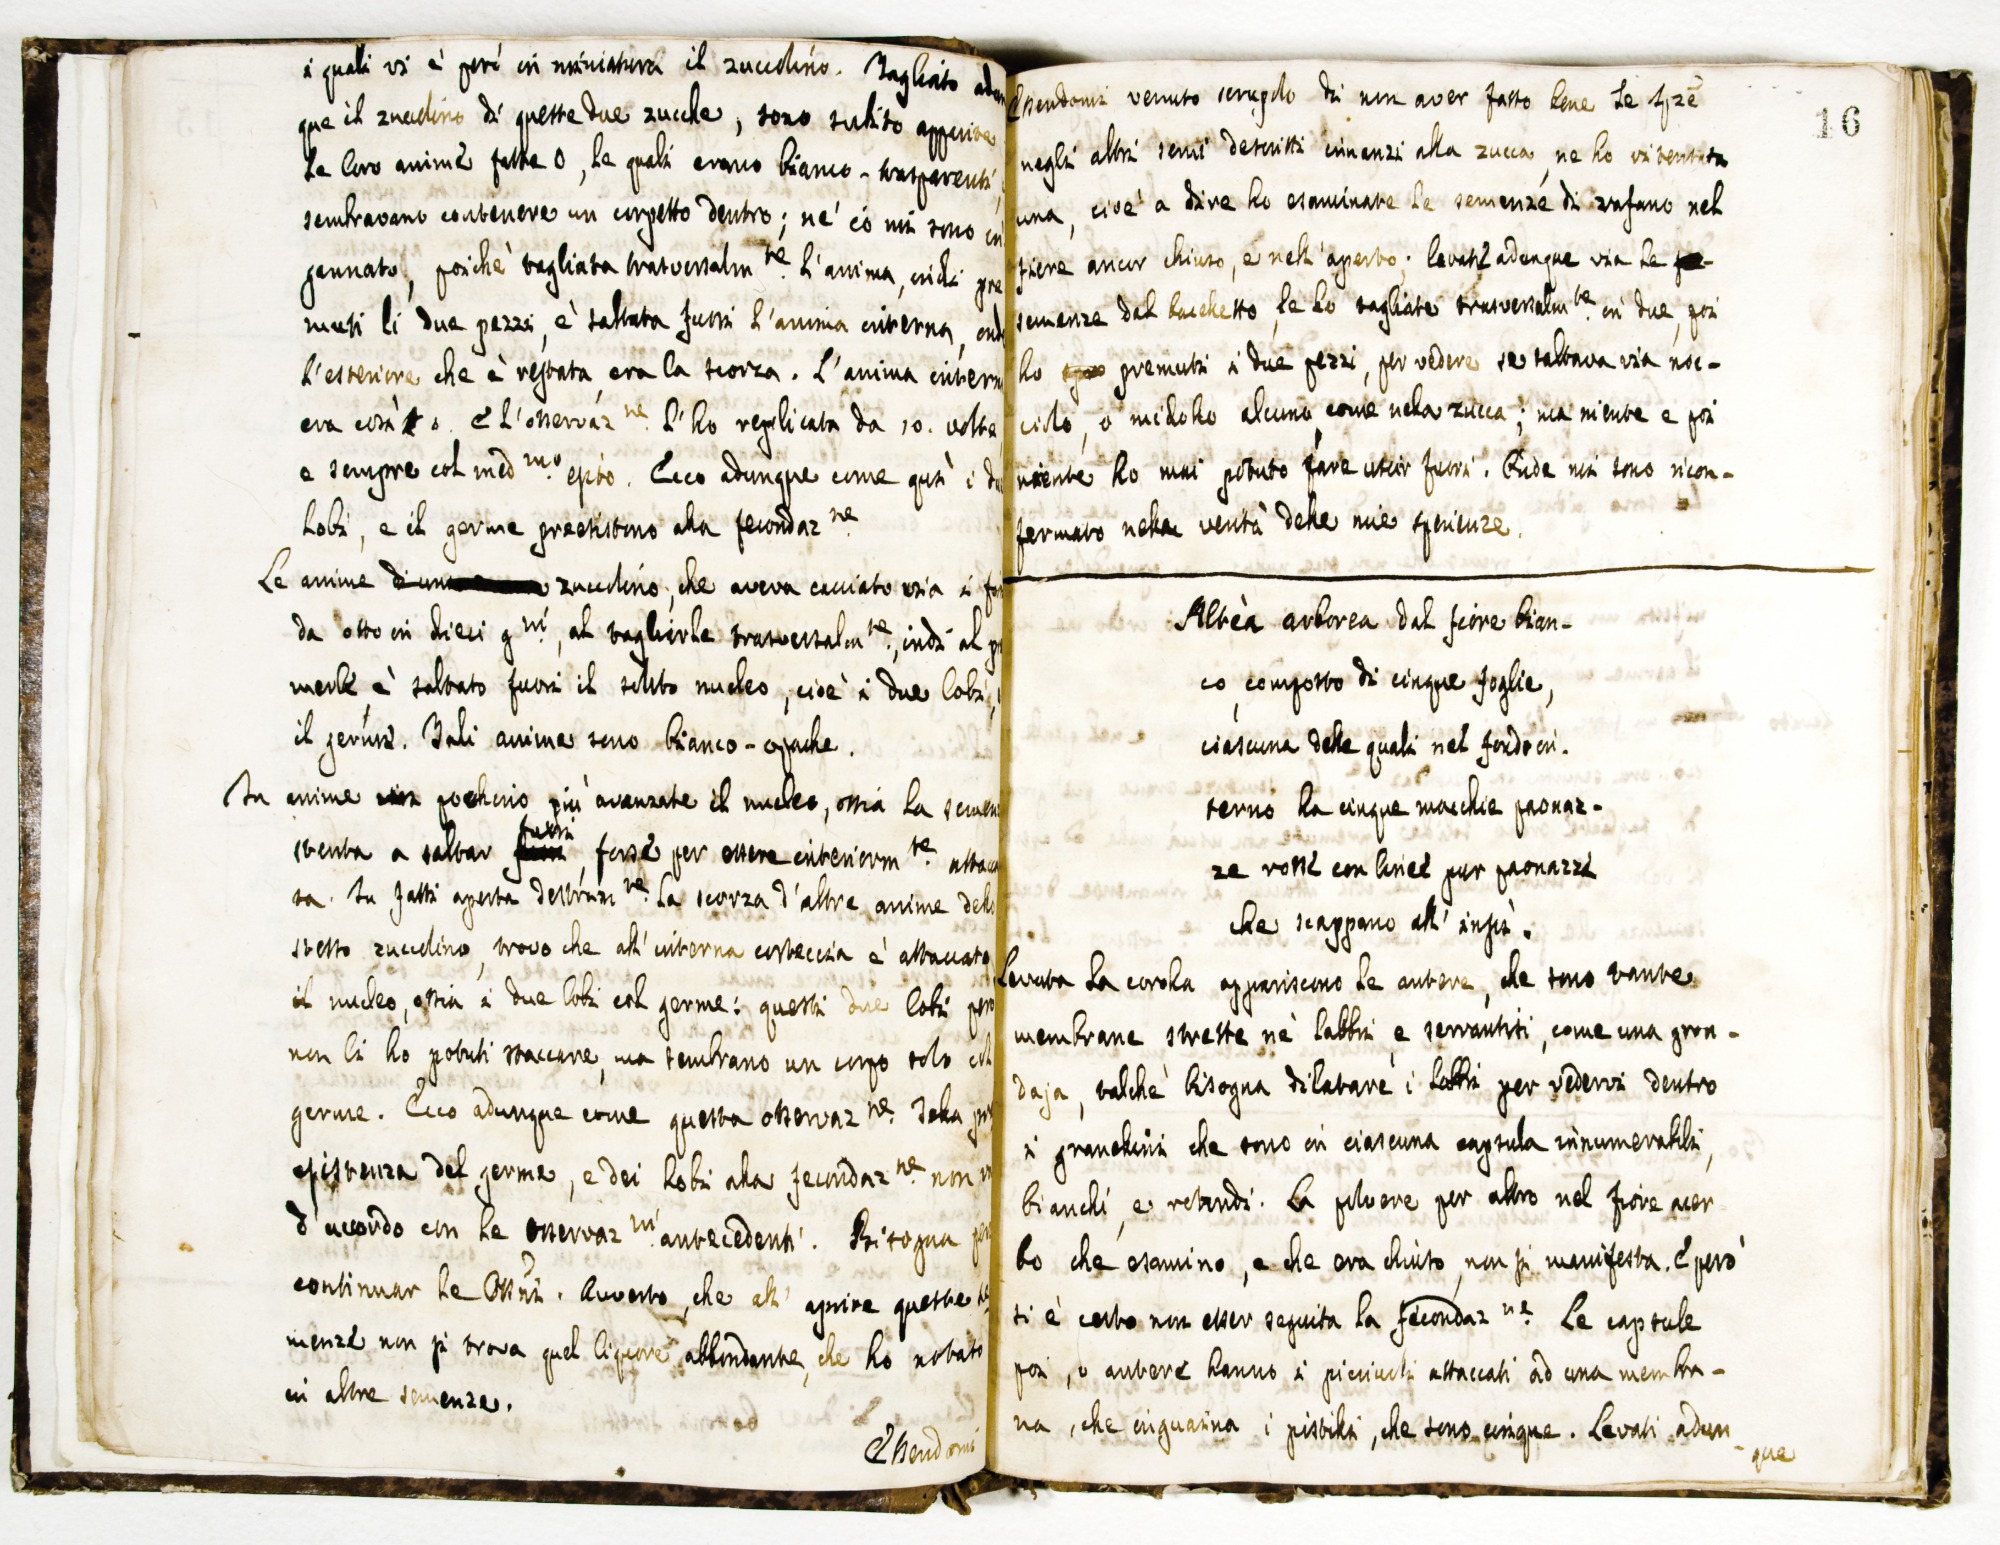 i quali vi è però in miniatura il zuccolino. Tagliato adun
que il zuccolino di queste due zucche, sono subito apparite
le loro anime fatte 0, le quali erano bianco-trasparenti,
sembravano contenere un corpetto dentro; nè ciò mi sono in
gannato, poichè tagliata trasversalm.te l'anima, indi pre
muti li due pezzi, è saltata fuori l'anima interna, onde
l'esteriore che è restata era la scorza. L'anima intern
era così 0. E l'osservaz.ne l'ho replicata da 10. volte
e sempre col med.mo esito. Ecco adunque come qui i du
lobi, e il germe preesistono alla fecondaz.ne
Le anime di un zuccolino, che aveva cacciato via i fio
da otto in dieci g.ni, al tagliarle trasversalm.te, indi al pre
merle è saltato fuori il solito nucleo, cioè i due lobi,
il germe. Tali anime sono bianco-opache.
In anime pochino più avanzate il nucleo, ossia la semen
stenta a saltar fuori forse per essere interiorm.te attacca
ta. In fatti aperta destram.te la scorza d'altre anime dello
stesso zuccolino, trovo che all'interna corteccia è attaccato
il nucleo, ossia i due lobi col germe: questi due lobi però
non li ho potuti staccare, ma sembrano un corpo solo col
germe. Ecco adunque come questa osservaz.ne della pre
esistenza del germe, e dei lobi alla fecondaz.ne non
d'accordo con le osservaz.ni antecedenti. Bisogna però
continuar le Ossni. Avverto, che all'aprire queste se
menze non si trova quel liquore abbondante, che ho notato
in altre semenze.
Essendomi
16
Essendomi venuto scrupolo di non aver fatto bene le spze
negli altri semi descritti innanzi alla zucca, ne ho ritentata
una, cioè a dire ho esaminate le semenze di rafano nel
fiore ancor chiuso, e nell'aperto; levate adunque via le se
semenze dal bacchetto, le ho tagliate trasversalm.te in due, poi
ho premuti i due pezzi, per vedere se saltava via noc-
ciolo, o midollo alcuno come nella zucca; ma niente e poi
niente ho mai potuto fare uscir fuori. Onde mi sono ricon-
fermato nella verità delle mie sperienze.
Altèa arborea dal fiore bian-
co, composto di cinque foglie,
ciascuna delle quali nel fondo in-
terno ha cinque macchie paonaz-
ze rosse con linee pur paonazze
che scappano all'insù.
Levata la corolla appariscono le antere, che sono tante
membrane strette nè labbri e serrantisi, come una gron-
daja, talchè bisogna dilatare i labbri per vedervi dentro
i granellini che sono in ciascuna capsula innumerabili,
bianchi, e rotondi. La polvere per altro nel fiore acer
bo che esamino, e che era chiuso, non si manifesta. E però
si è certo non esser seguita la fecondaz.ne Le capsule
poi, o antere hanno i picciuoli attaccati ad una membra-
na, che inguaina i pistilli, che sono cinque. Levati adun-
que